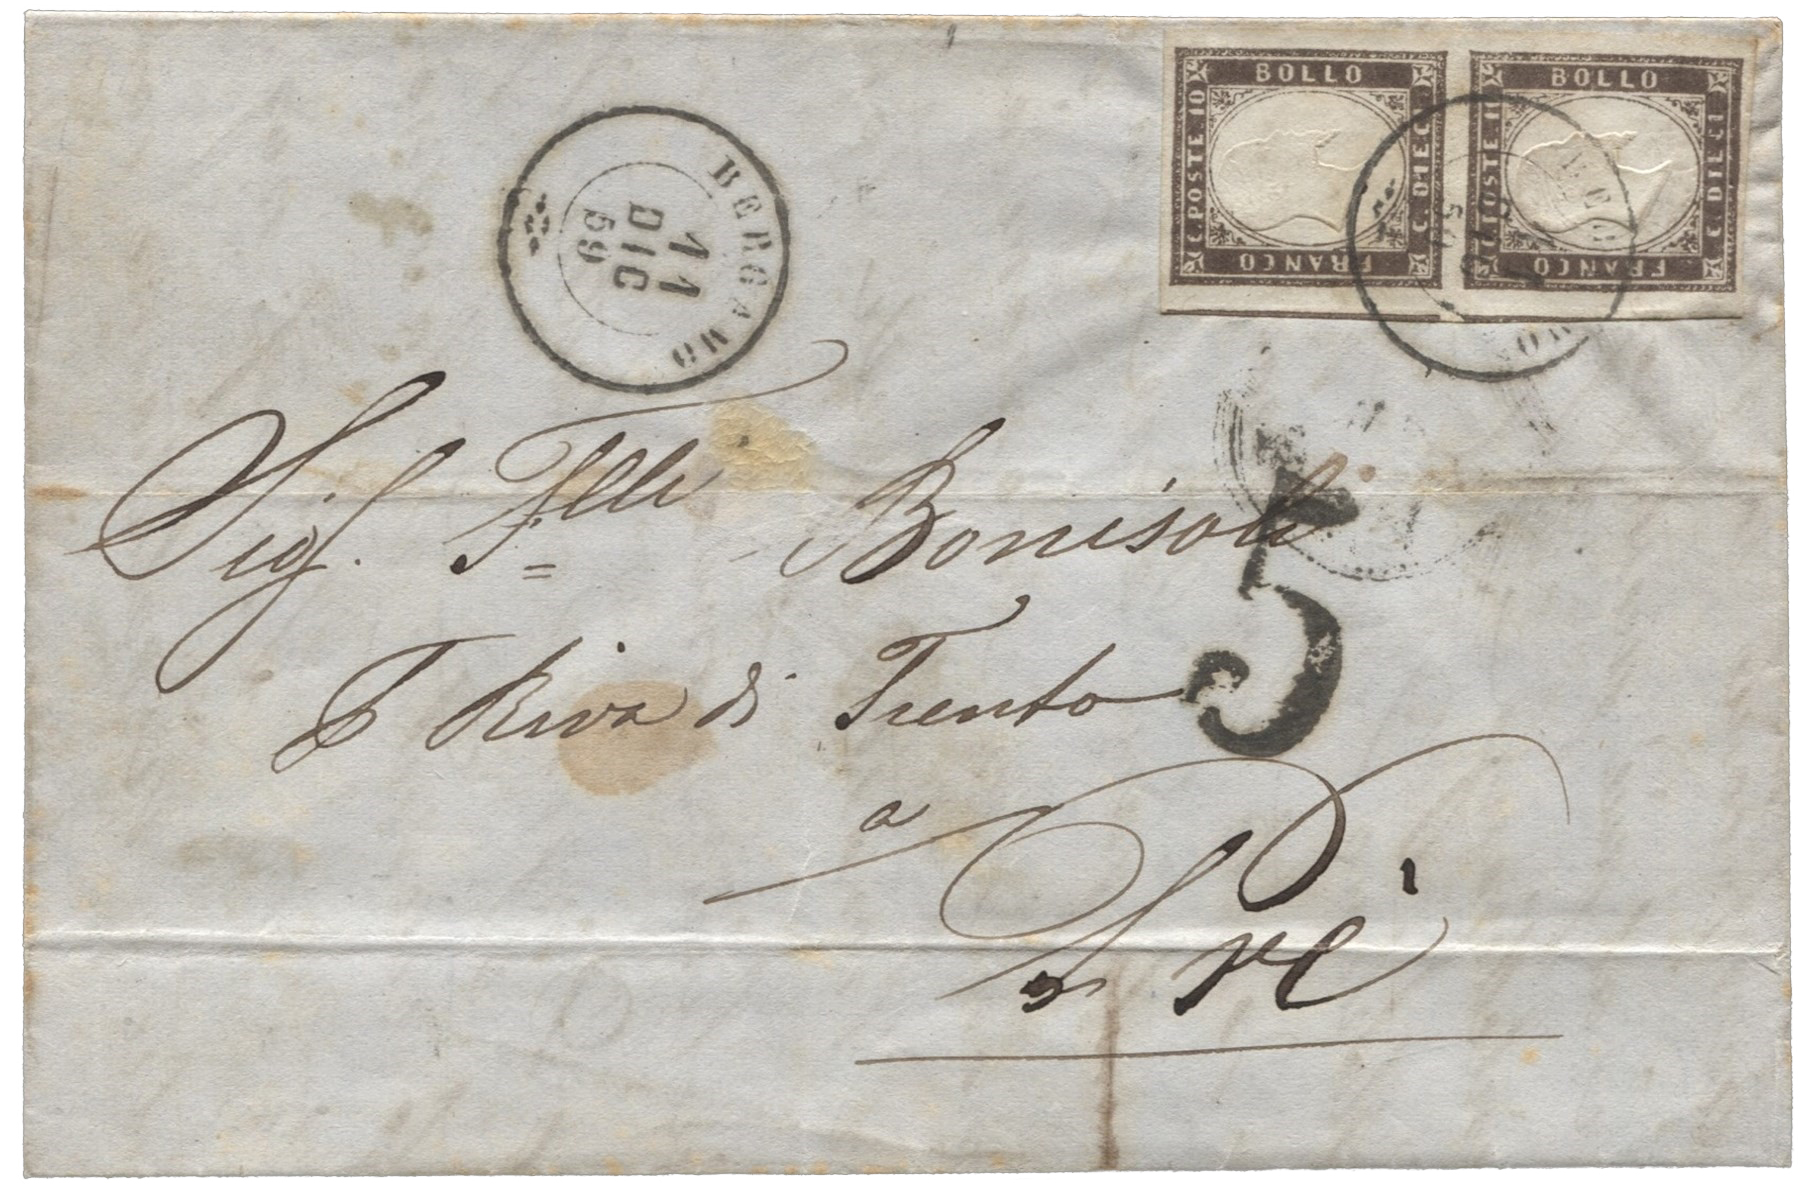 BOLLO
C. POSTE 10
C. DIECI
FRANCO
BOLLO
C. POSTE 10
C. DIECI
FRANCO
BERGAMO
11
DIC
59
BERGAMO
Sig. F.lli Bonisoli
5
P Riva di Trento
a
Pré